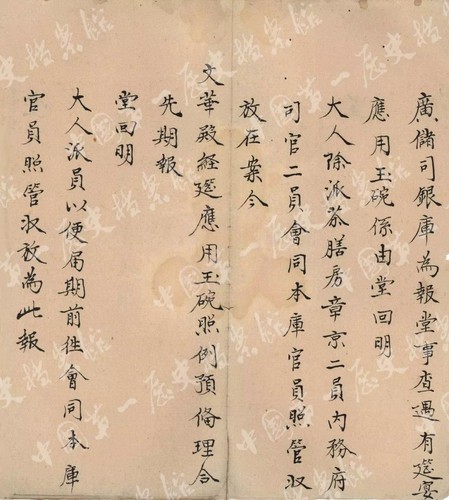 廣儲司銀庫為報堂事查遇有筵宴
應用玉碗係由堂回明
大人除派茶膳房章京二員內務府
司官二員會同本庫官員照管收
放在案今
文華殿經筵應用玉碗照例預備理合
先期報
堂回明
大人派員以便屆期前往會同本庫
官員照管收放為此報
中國第一歷史檔案館